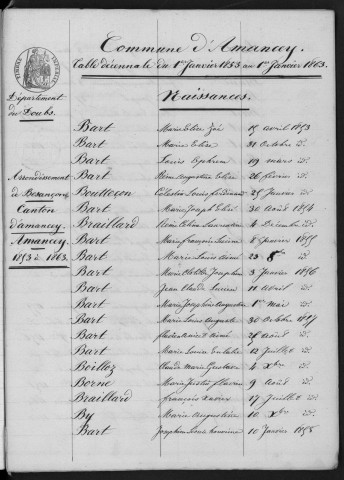 Commune d'Amancey.
Table décennale du 1er Janvier 1853 au 1er Janvier 1863.
Département
du Doubs.
Arrondissement
de Besançon
Canton
d'amancey.
Amancey.
1853 à 1863.
Naissances.
Bart Marie Elise Zoé 15 avril 1853
Bart Marie Elisa 31 Octobre id.
Bart Louis 19 mars id.
Bart Augustin 26 février id.
Boulleçon Célestin Louis ferdinand 25 Janvier id.
Bart Marie Joseph Elise 30 Août 1854
Braillard 4 Décembre id.
Bart Marie françois Lucien 8 Janvier 1855
Bart Marie Louis 23 8bre id.
Bart Marie Clotilde Joséphine 3 Janvier 1856
Bart Jean Claude Lucien 11 avril id.
Bart Marie Joséphine Augustine 1er Mai id.
Bart Marie Louis Auguste 30 Octobre 1857
Bart Aimé 25 Août id.
Bart Marie Louise 12 Juillet id.
Boilloz Claude Marie Gustave 4 Xbre id.
Borne Marie Justin 9 Août id.
Braillard françois Xavier 17 Juillet id.
By Marie Augustine 10 Xbre id.
Bart Joséphine Louise 10 Janvier 1858